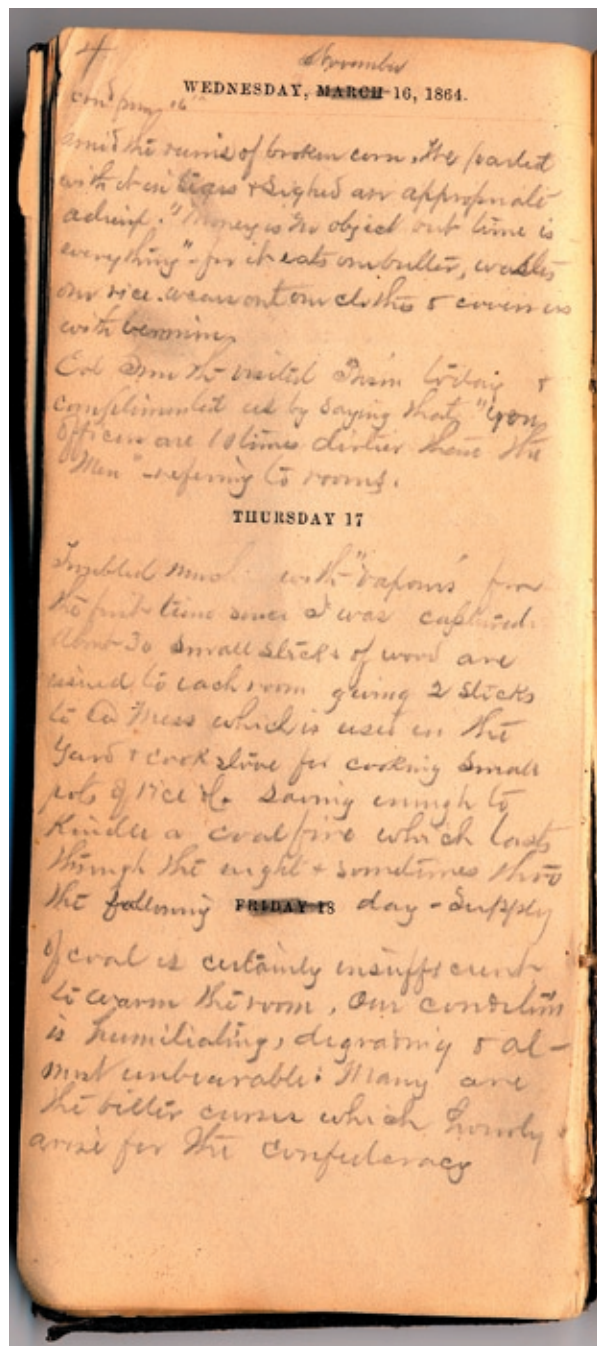 4
November
WEDNESDAY, MARCH 16, 1864.
from "6"
amid the ruins of broken corn. We parted
with it in tears & sighed an appropriate
"Money is no object but time is
everything" - for it eats our butter, wastes
our rice. wears out our clothes & covers us
with vermin.
Col Smith visited Prison today &
complimented us by saying that "you
officers are 10 times dirtier than the
Men" - referring to rooms.
THURSDAY 17
Troubled much with "vapours" for
the first time since I was captured.
About 30 small sticks of wood are
issued to each room giving 2 sticks
to a Mess which is used in the
Yard & cook stove for cooking small
pots of rice &c. saving enough to
Kindle a coal fire which lasts
through the night & sometimes thro
the following FRIDAY 18 day - Supply
of coal is certainly insufficient
to warm the room. Our condition
is humiliating, degrading & al-
most unbearable: Many are
the bitter curses which hourly
arise for the Confederacy